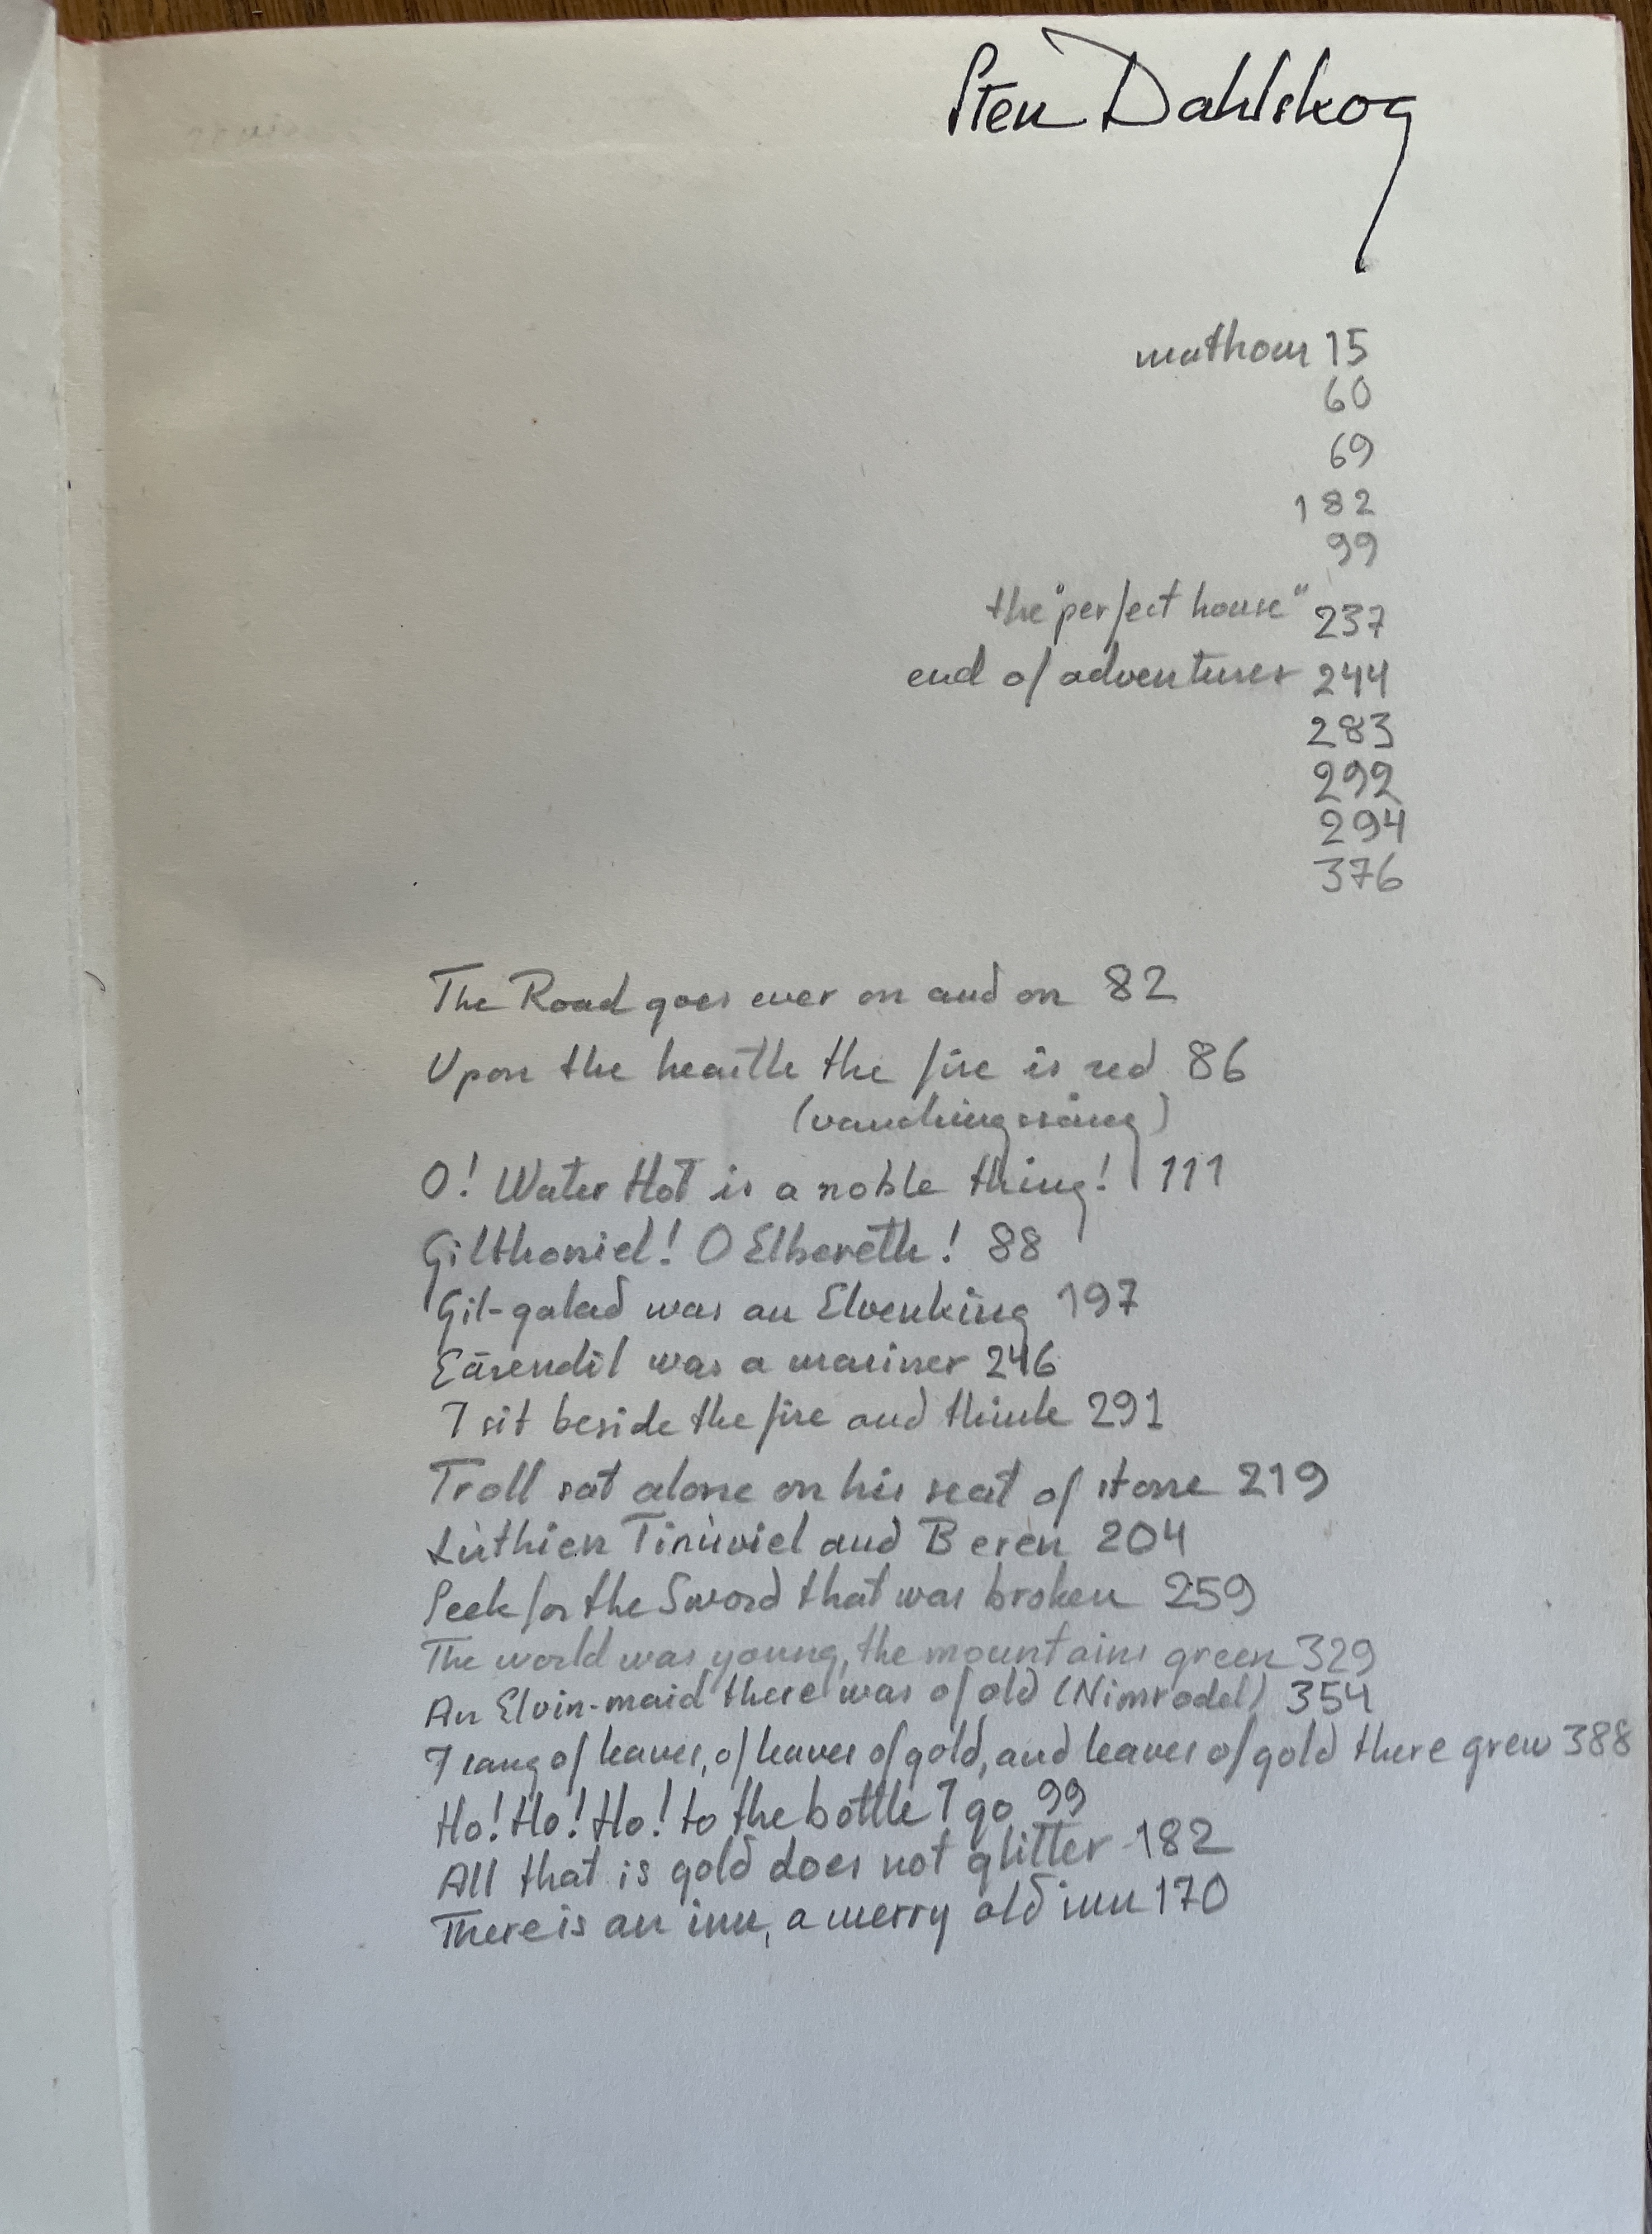 Sten Dahlskog
mathom 15
60
69
182
99
the "perfect house" 237
end of adventures 244
283
292
294
376
The Road goes ever on and on 82
Upon the hearth the fire is red 86
(vandringssång)
O! Water Hot is a noble thing! 111
Gilthoniel! O Elbereth! 88
Gil-galad was an Elvenking 197
Eärendil was a mariner 246
I sit beside the fire and think 291
Troll sat alone on his seat of stone 219
Lúthien Tinúviel and Beren 204
Seek for the Sword that was broken 259
The world was young, the mountains green 329
An Elvin-maid there was of old (Nimrodel) 354
I sang of leaves, of leaves of gold, and leaves of gold there grew 388
Ho! Ho! Ho! to the bottle I go 99
All that is gold does not glitter 182
There is an inn, a merry old inn 170